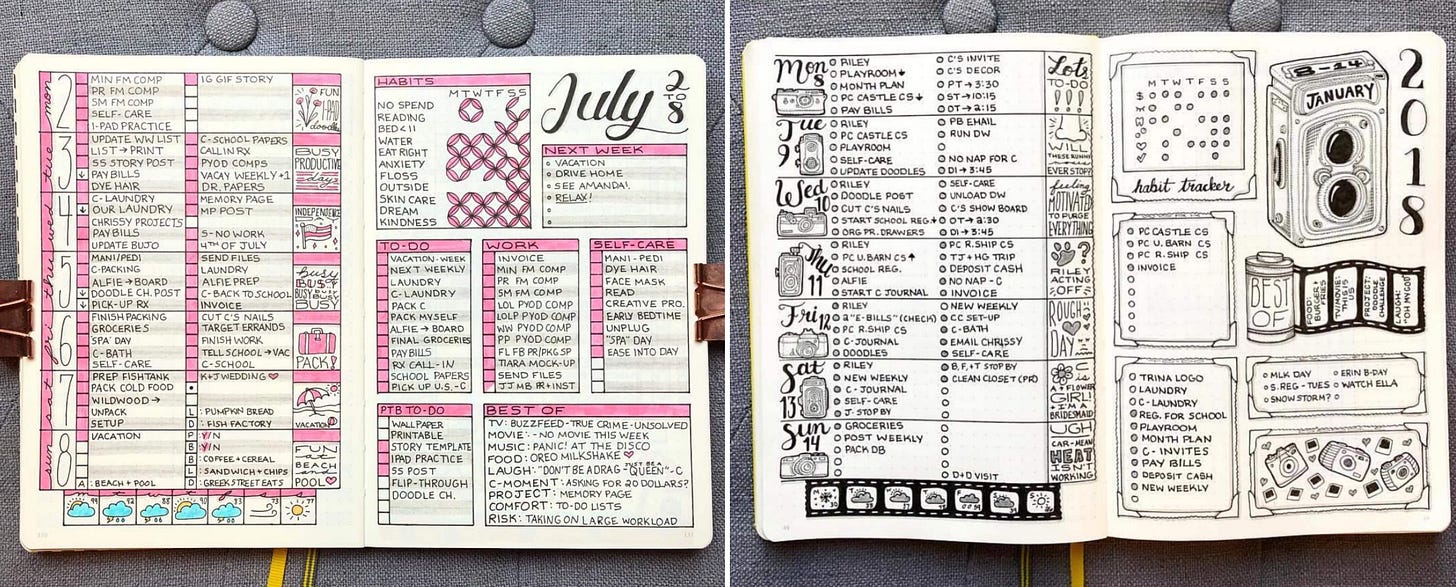 mon
2
MIN FM COMP
PR FM COMP
SM FM COMP
SELF-CARE
I-PAD PRACTICE
IG GIF STORY
FUN
I-PAD
doodles
tue
3
UPDATE WW LIST
LIST → PRINT
SS STORY POST
↓ PAY BILLS
DYE HAIR
C-SCHOOL PAPERS
CALL IN RX
PYOD COMPS
VACAY WEEKLY +1
DR. PAPERS
BUSY
PRODUCTIVE
days
wed
4
C-LAUNDRY
↓ OUR LAUNDRY
CHRISSY PROJECTS
PAY BILLS
UPDATE BUJO
MEMORY PAGE
MP POST
S-NO WORK
4TH OF JULY
INDEPENDENCE
thu
5
MANI/PEDI
C-PACKING
ALFIE → BOARD
↓ DOODLE CH. POST
PICK-UP RX
SEND FILES
LAUNDRY
ALFIE PREP
C-BACK TO SCHOOL
INVOICE
busy
BUSY
BUSY BUSY
BUSY
fri
6
FINISH PACKING
GROCERIES
"SPA" DAY
C-BATH
SELF-CARE
CUT C'S NAILS
TARGET ERRANDS
FINISH WORK
TELL SCHOOL → VAC
C-SCHOOL
PACK!
sat
7
PREP FISHTANK
PACK COLD FOOD
WILDWOOD →
UNPACK
SETUP
K+J WEDDING ♡
L: PUMPKIN BREAD
D: FISH FACTORY
VACATION
sun
8
VACATION
A: BEACH + POOL
P: Y/N
B: Y/N
B: COFFEE + CEREAL
L: SANDWICH + CHIPS
D: GREEK STREET EATS
FUN
IN
BEACH
POOL ♡
HABITS
M T W T F S S
NO SPEND
READING
BED < 11
WATER
EAT RIGHT
ANXIETY
FLOSS
OUTSIDE
SKIN CARE
DREAM
KINDNESS
July
2
TO
8
NEXT WEEK
VACATION
DRIVE HOME
SEE AMANDA!
RELAX!
TO-DO
VACATION-WEEK
NEXT WEEKLY
LAUNDRY
C-LAUNDRY
PACK C
PACK MYSELF
ALFIE → BOARD
FINAL GROCERIES
PAY BILLS
RX CALL-IN
SCHOOL PAPERS
PICK UP U.S.-C
WORK
INVOICE
MIN FM COMP
PR FM COMP
SM FM COMP
LOL PYOD COMP
LOLP PYOD COMP
WW PYOD COMP
PP PYOD COMP
FL FB PR/PKG SP
TIARA MOCK-UP
SEND FILES
JJ MB PR + INST
SELF-CARE
MANI-PEDI
DYE HAIR
FACE MASK
READ
CREATIVE PRO.
EARLY BEDTIME
UNPLUG
"SPA" DAY
EASE INTO DAY
PTB TO-DO
WALLPAPER
PRINTABLE
STORY TEMPLATE
IPAD PRACTICE
SS POST
FLIP-THROUGH
DOODLE CH.
BEST OF
TV: BUZZFEED - TRUE CRIME - UNSOLVED
MOVIE: - NO MOVIE THIS WEEK
MUSIC: PANIC! AT THE DISCO
FOOD: OREO MILKSHAKE ♡
LAUGH: "DON'T BE A DRAG JUST BE A QUEEN" -C
C-MOMENT: ASKING FOR 20 DOLLARS?
PROJECT: MEMORY PAGE
COMFORT: TO-DO LISTS
RISK: TAKING ON LARGE WORKLOAD
Mon
8
RILEY
PLAYROOM ↓
MONTH PLAN
PC CASTLE CS ↓
PAY BILLS
C'S INVITE
C'S DECOR
PT → 3:30
ST → 10:15
OT → 2:15
Lots
TO-DO
!!!
Tue
9
RILEY
PC CASTLE CS
PLAYROOM
SELF-CARE
UPDATE DOODLES
PB EMAIL
RUN DW
NO NAP FOR C
DI → 3:45
WILL
THESE RUNNY
EVER STOP?
Wed
10
RILEY
DOODLE POST
CUT C'S NAILS
START SCHOOL REG. ↓
ORG PR. DRAWERS
SELF-CARE
UNLOAD DW
C'S SHOW BOARD
OT → 2:30
DI → 3:45
feeling
MOTIVATED
TO PURGE
EVERYTHING
Thu
11
RILEY
PC U.BARN CS ↑
SCHOOL REG.
ALFIE
START C JOURNAL
PC R.SHIP CS
TJ + HG TRIP
DEPOSIT CASH
NO NAP - C
INVOICE
?
RILEY
ACTING
OFF
Fri
12
RILEY
2 "E-BILLS" (CHECK)
PC R.SHIP CS
C-JOURNAL
DOODLES
NEW WEEKLY
CC SET-UP
C-BATH
EMAIL CHRISSY
SELF-CARE
ROUGH
DAY
Sat
13
RILEY
NEW WEEKLY
C-JOURNAL
SELF-CARE
J. STOP BY
B, F, + T STOP BY
CLEAN CLOSET (PR)
C is
A + FLOWER
GIRL!
+ I'M A
BRIDESMAID
Sun
14
GROCERIES
POST WEEKLY
PACK DB
D+D VISIT
UGH
CAR-MEAN
HEAT
ISN'T
WORKING
M T W T F S S
habit tracker
8-14
JANUARY
2
0
1
8
PC CASTLE CS
PC U. BARN CS
PC R. SHIP CS
INVOICE
BEST
OF
FOOD:
BURGER +
FRIES
TV/MOVIE:
THIS IS
US
PROJECT:
DOODLE
CHALLENGE
LAUGH:
"OH MY GOD"
TRINA LOGO
LAUNDRY
C-LAUNDRY
REG. FOR SCHOOL
PLAYROOM
MONTH PLAN
C-INVITES
PAY BILLS
DEPOSIT CASH
NEW WEEKLY
MLK DAY
ERIN B-DAY
S. REG - TUES
WATCH ELLA
SNOW STORM?